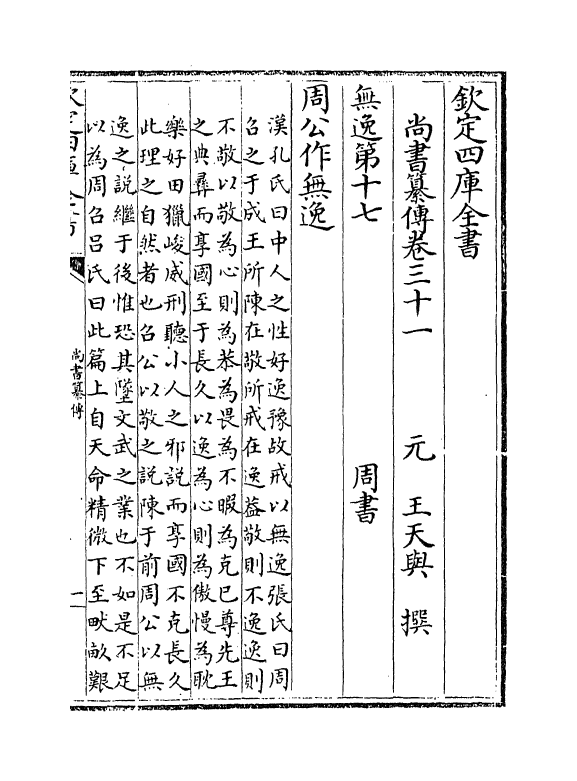 欽定四庫全書
尚書纂傳卷三十一　元　王天與　撰
無逸第十七　周書
周公作無逸
漢孔氏曰中人之性好逸豫故戒以無逸張氏曰周
召之于成王所陳在敬所戒在逸蓋敬則不逸逸則
不敬以敬為心則為恭為畏為不暇為克已尊先王
之典彝而享國至于長久以逸為心則為傲慢為耽
樂好田獵峻威刑聽小人之邪說而享國不克長久
此理之自然者也召公以敬之說陳于前周公以無
逸之說繼于後惟恐其墜文武之業也不如是不足
以為周召呂氏曰此篇上自天命精微下至畎畝艱
欽定四庫全書
尚書纂傳
一